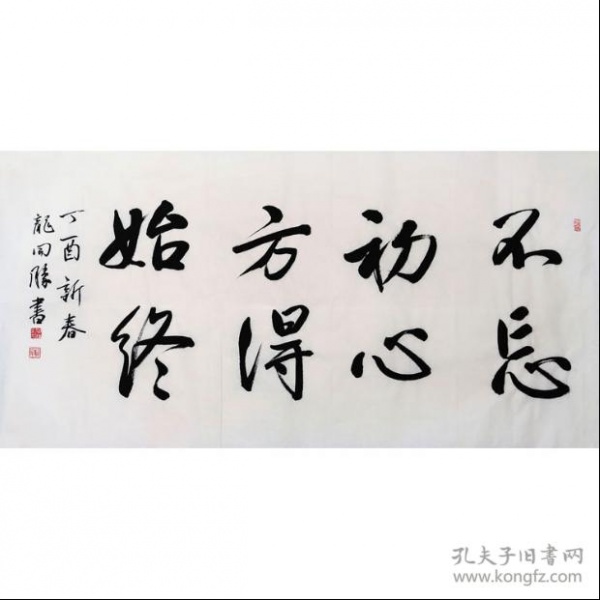 不忘
初心
方得
始终
丁酉新春
龍开胜書
孔夫子旧书网
www.kongfz.com